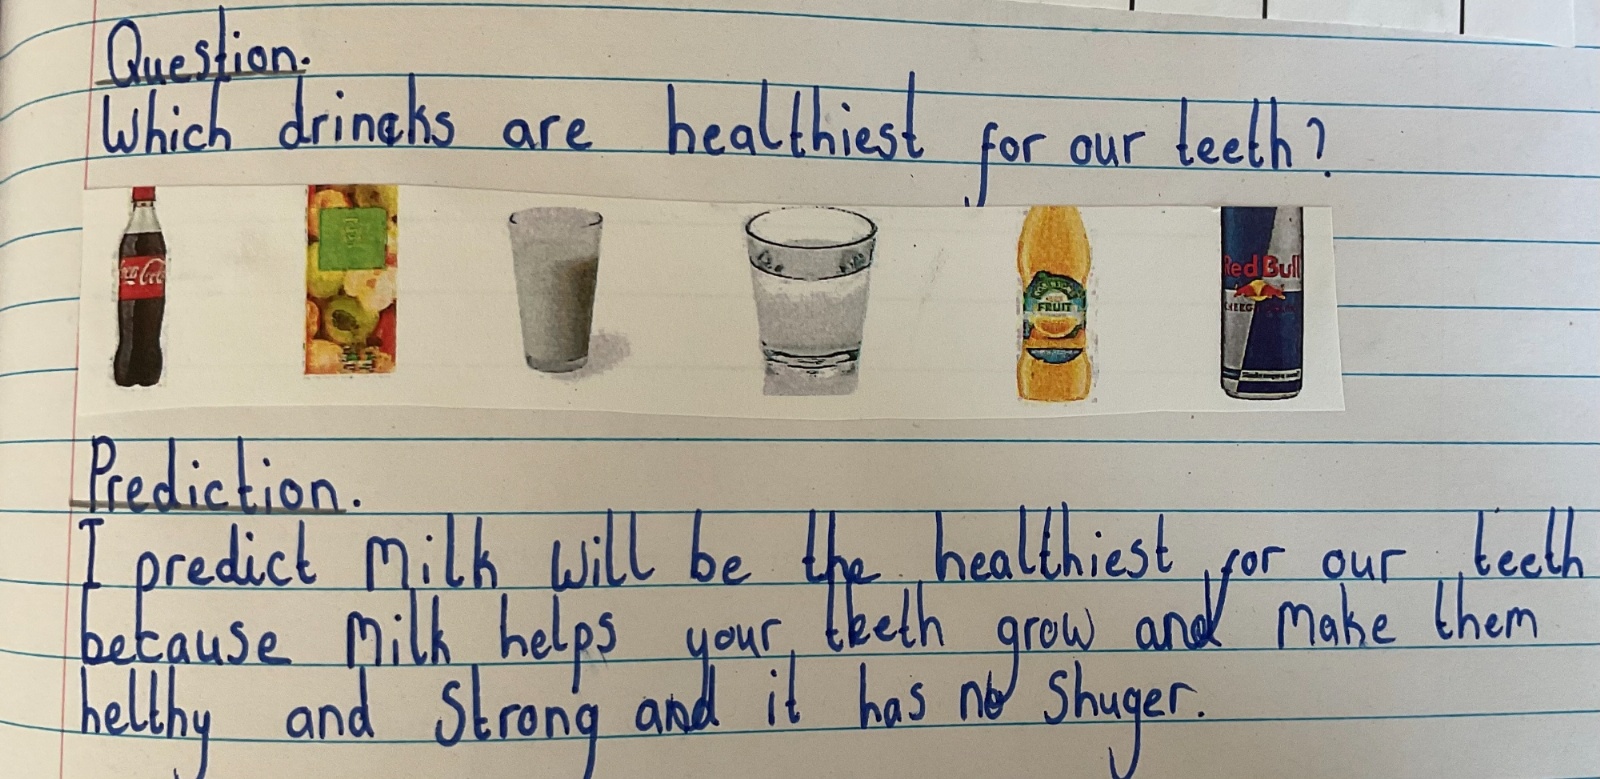 Question.
Which drincks are healthiest for our teeth?
Coca Cola
FRUIT
Red Bull
Prediction.
I predict Milk will be the healthiest for our teeth
because Milk helps your teeth grow and Make them
helthy and Strong and it has no Shuger.